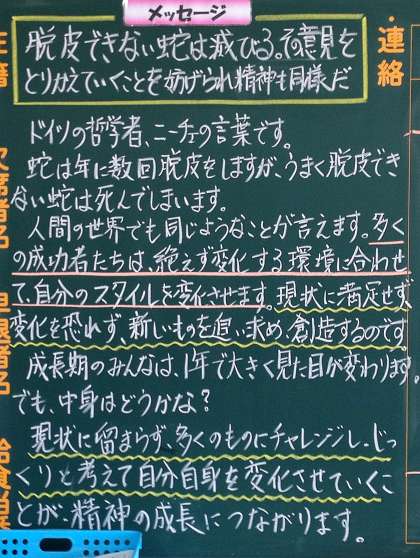 メッセージ
脱皮できない蛇は滅びる。その意見を
とりかえていくことを妨げられ精神も同様だ
ドイツの哲学者、ニーチェの言葉です。
蛇は年に数回脱皮をしますが、うまく脱皮でき
ない蛇は死んでしまいます。
人間の世界でも同じようなことが言えます。多く
の成功者たちは、絶えず変化する環境に合わせ
て、自分のスタイルを変化させます。現状に満足せず
変化を恐れず、新しいものを追い求め、創造するのです。
成長期のみんなは、1年で大きく見た目が変わります。
でも、中身はどうかな?
現状に留まらず、多くのものにチャレンジし、じっ
くりと考えて自分自身を変化させていくこ
とが、精神の成長につながります。
・連絡